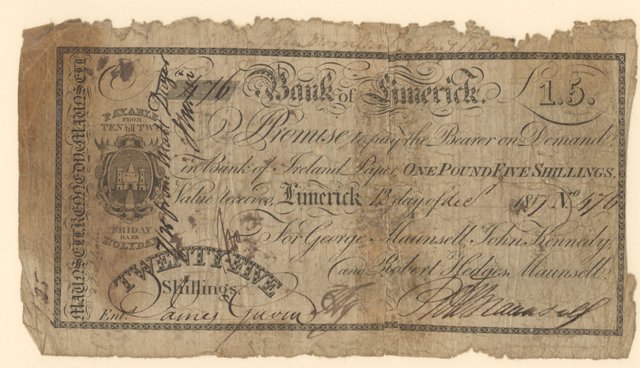 476 Bank of Limerick. £1.5.
PAYABLE
FROM
TEN till TWO
I Promise to pay the Bearer on Demand,
in Bank of Ireland Paper ONE POUND FIVE SHILLINGS,
Value received, Limerick 13 day of decr 1817 No 476
FRIDAY
BANK
HOLYDAY
For George Maunsell, John Kennedy,
and Robert Hedges Maunsell,
TWENTYFIVE
Shillings
Entd. James Gavin
Robt Maunsell
MAUNSELL KENNEDY MAUNSELL